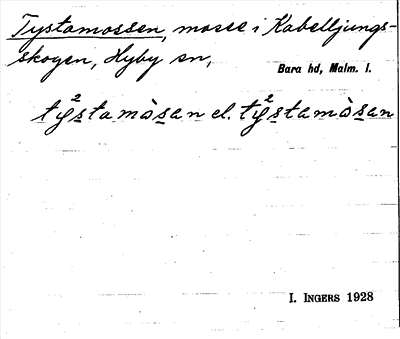 Tystamossen, mosse i Kabelljungs-
skogen, Hyby sn,
Bara hd, Malm. l.
ty²stamòsan el. tȳ²stamòsan
I. INGERS 1928